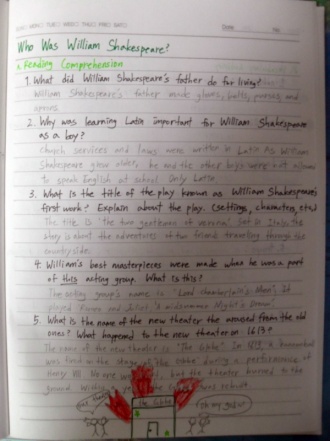 Who Was William Shakespeare?
Reading Comprehension
1. What did William Shakespeare's father do for living?
William Shakespeare's father made gloves, belts, purses, and
aprons
2. Why was learning Latin important for William Shakespeare
as a boy?
church services and laws were written in Latin As William
Shakespeare grow older, he and the other boys were not allowed
to speak English at school Only Latin
3. What is the title of the play known as William Shakespeare's
first work? Explain about the play. (settings, characters, etc.)
The title is "the two gentlemen of verona" Set in Italy, the
story is about the adventures of two friend traveling through the
countryside.
4. William's best masterpieces were made when he was a part
of this acting group. What is this?
The acting group's name is "Lord chamberlain's Men". It
played Romeo and Juliet, A midsummer Night's Dream
5. What is the name of the new theater the around from the old
ones? What happened to the new theater on 1613?
The name of the new theater is "The Globe" In 1613, a
was fired in the story of the Globe during a performance of
Henry VIII No one but the theater burned to the
ground. Within a year the Globe was rebuilt
The Globe
Oh my god!!